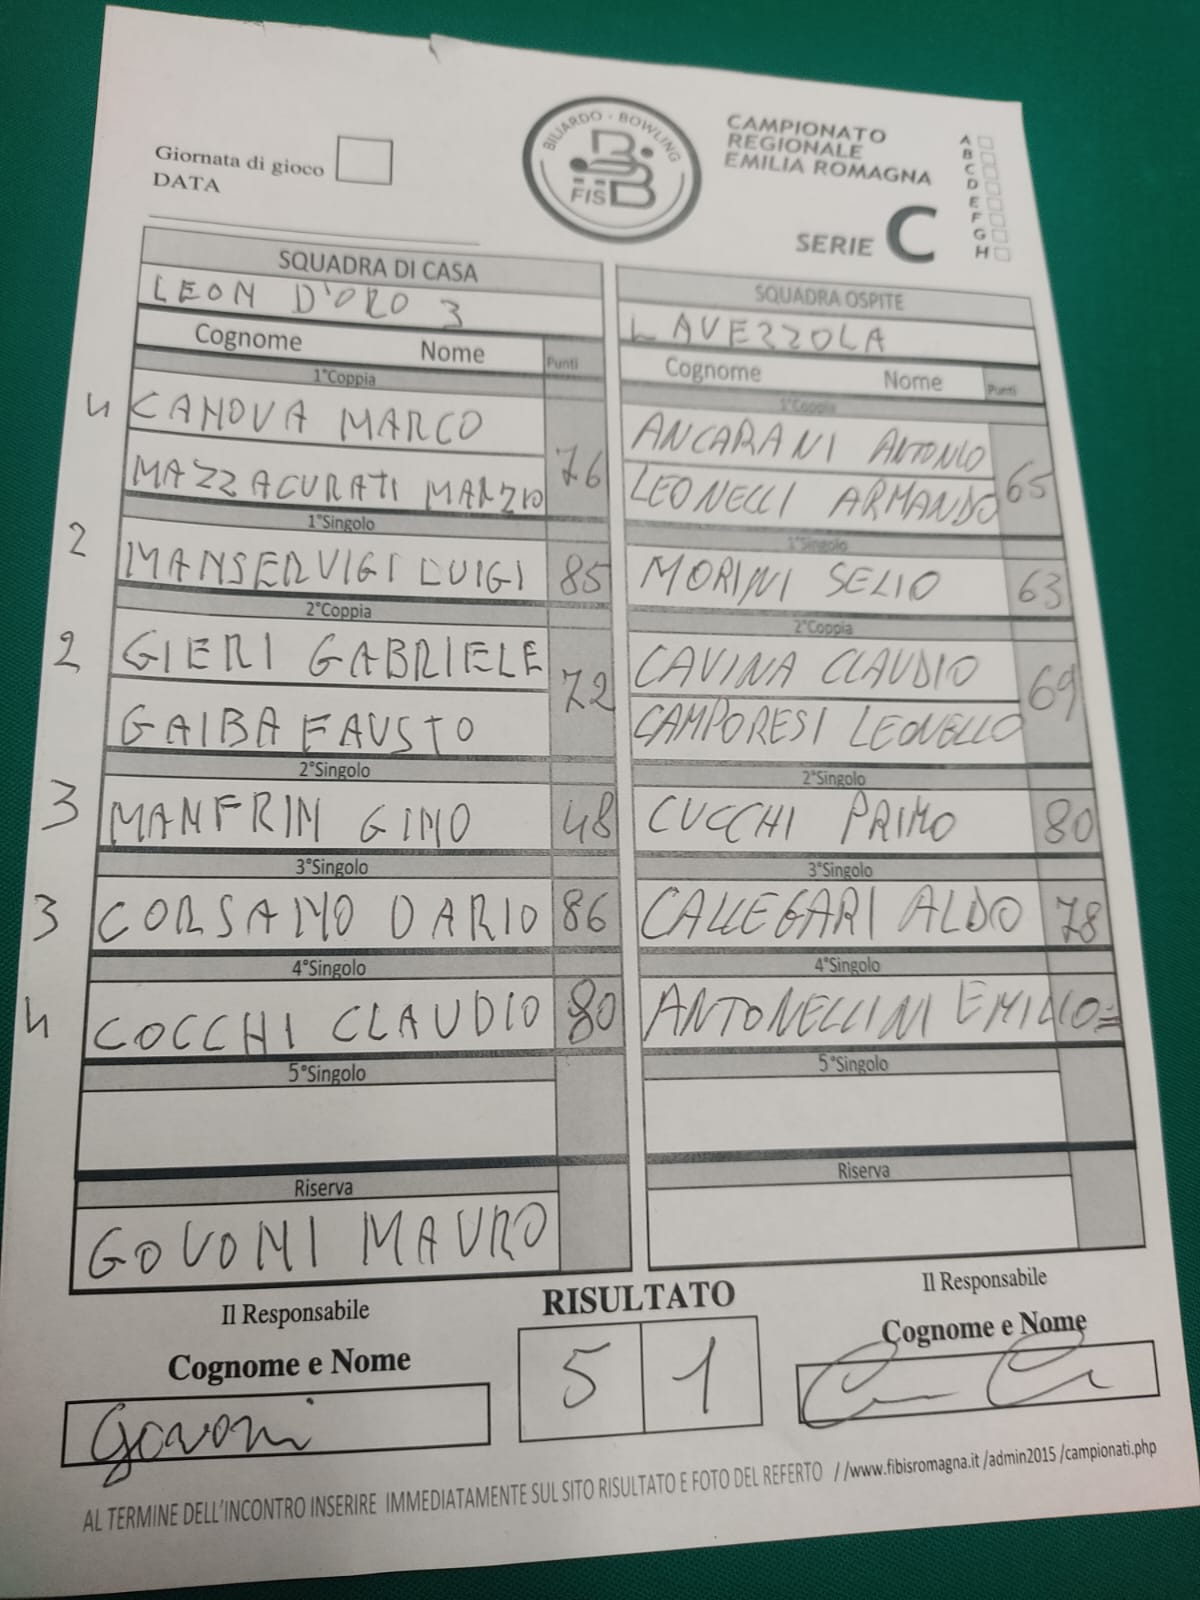 Giornata di gioco
DATA
BILIARDO - BOWLING
FIS B
CAMPIONATO
REGIONALE
EMILIA ROMAGNA
SERIE C
A
B
C
D
E
F
G
H
SQUADRA DI CASA
LEON D'ORO 3
Cognome Nome Punti
1°Coppia
4 CANOVA MARCO
MAZZACURATI MARZIO 76
1°Singolo
2 MANSERVIGI LUIGI 85
2°Coppia
2 GIERI GABRIELE
GAIBA FAUSTO 72
2°Singolo
3 MANFRIN GINO 48
3°Singolo
3 CORSANO DARIO 86
4°Singolo
4 COCCHI CLAUDIO 80
5°Singolo
Riserva
GOVONI MAURO
SQUADRA OSPITE
LAVEZZOLA
Cognome Nome Punti
1°Coppia
ANCARANI ANTONIO
LEONELLI ARMANDO 65
1°Singolo
MORINI SELIO 63
2°Coppia
CAVINA CLAUDIO
CAMPORESI LEONELLO 69
2°Singolo
CUCCHI PRIMO 80
3°Singolo
CALLEGARI ALDO 78
4°Singolo
ANTONELLINI EMILIO =
5°Singolo
Riserva
Il Responsabile
Cognome e Nome
Govoni
RISULTATO
5 1
Il Responsabile
Cognome e Nome
AL TERMINE DELL'INCONTRO INSERIRE IMMEDIATAMENTE SUL SITO RISULTATO E FOTO DEL REFERTO //www.fibisromagna.it /admin2015 /campionati.php